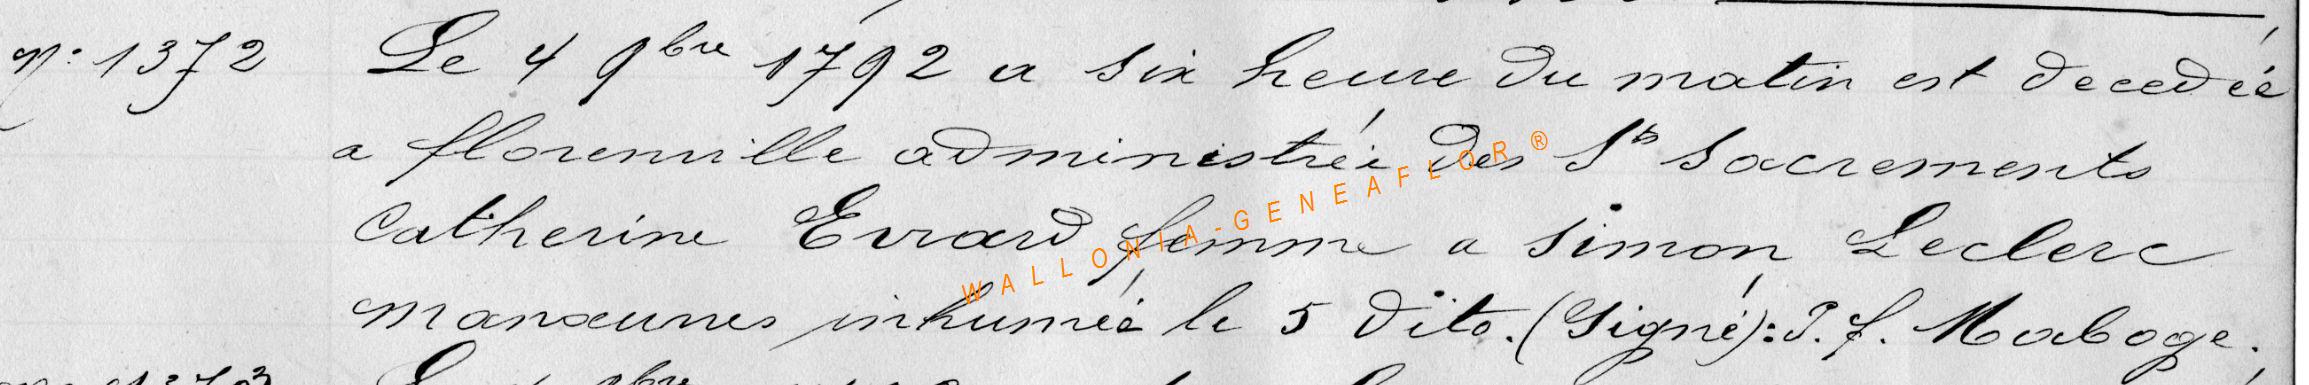 N.° 1372 Le 4 9bre 1792 a six heure du matin est decedée
a florenville administrée des Sts sacrements
Catherine Evrard femme a simon Leclerc
manœuvres inhumée le 5 dito. (Signé): J. f. Maboge.
WALLONIA-GENEAFLOR®